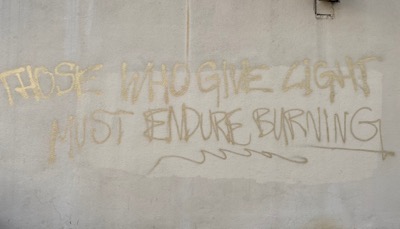 THOSE WHO GIVE LIGHT
MUST ENDURE BURNING